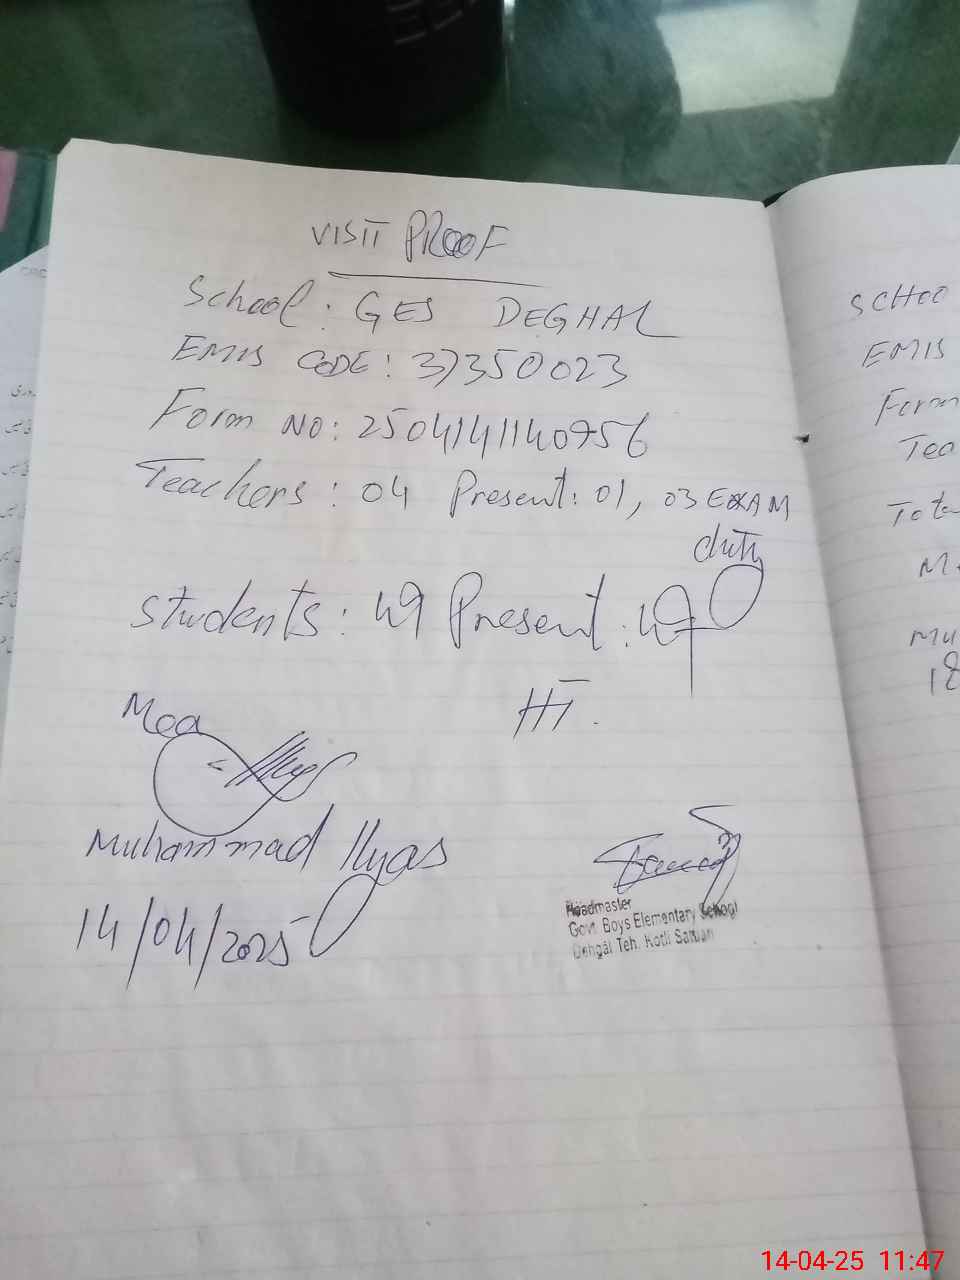 VISIT PROOF
School: GES DEGHAL
EMIS CODE: 37350023
Form NO: 2504141140956
Teachers: 04 Present: 01, 03 EXAM
duty
Students: 49 Present: 49
HT.
Mea
Muhammad Ilyas
14/04/2025
Headmaster
Govt. Boys Elementary School
Dehgal Teh. Kotli Sattian
SCHOO
EMIS
Form
Tea
Tota
M
Mu
18
14-04-25 11:47